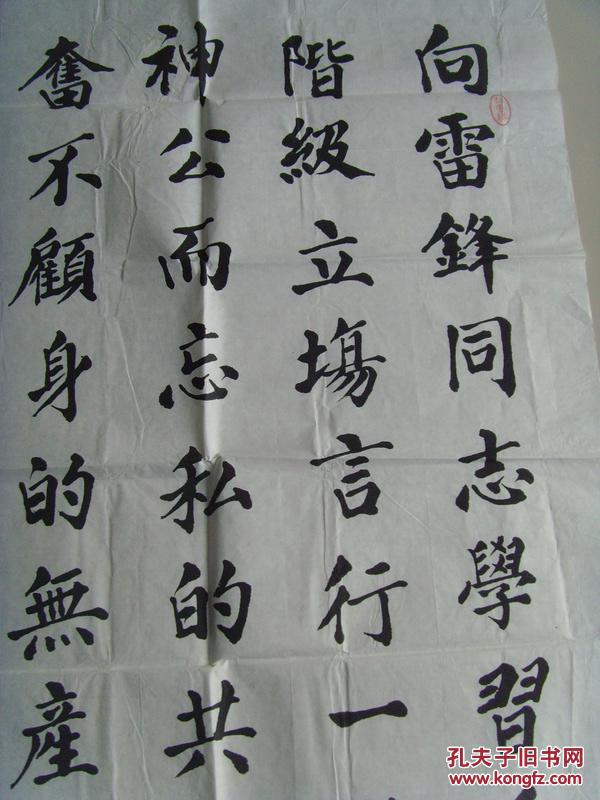 向雷鋒同志學習
階級立場言行一
神公而忘私的共
奮不顧身的無産
孔夫子旧书网
www.kongfz.com